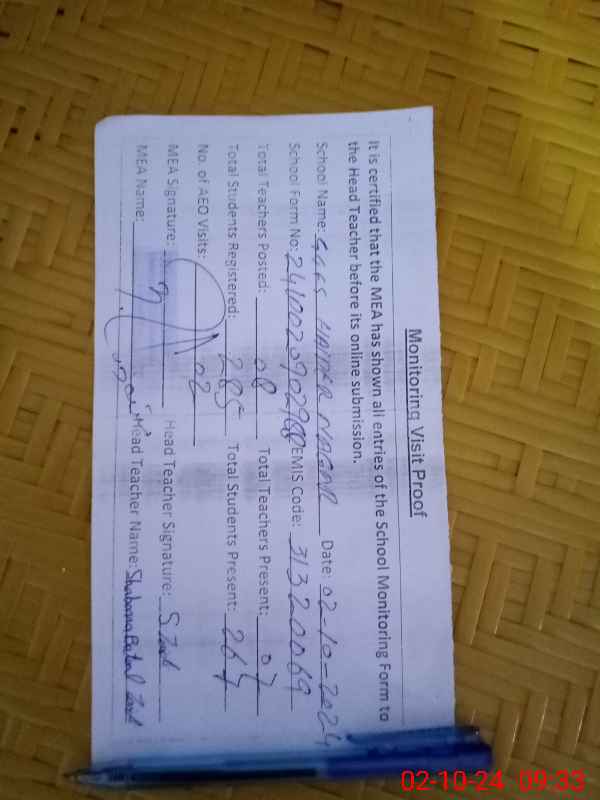 Monitoring Visit Proof
It is certified that the MEA has shown all entries of the School Monitoring Form to
the Head Teacher before its online submission.
School Name: GGES HAIDER NAGAR Date: 02-10-2024
School Form No: EMIS Code: 31320069
Total Teachers Posted: 08 Total Teachers Present: 07
Total Students Registered: 285 Total Students Present: 267
No. of AEO Visits: 02
MEA Signature: Head Teacher Signature: S.
MEA Name: Head Teacher Name: Shabana
02-10-24 09:33